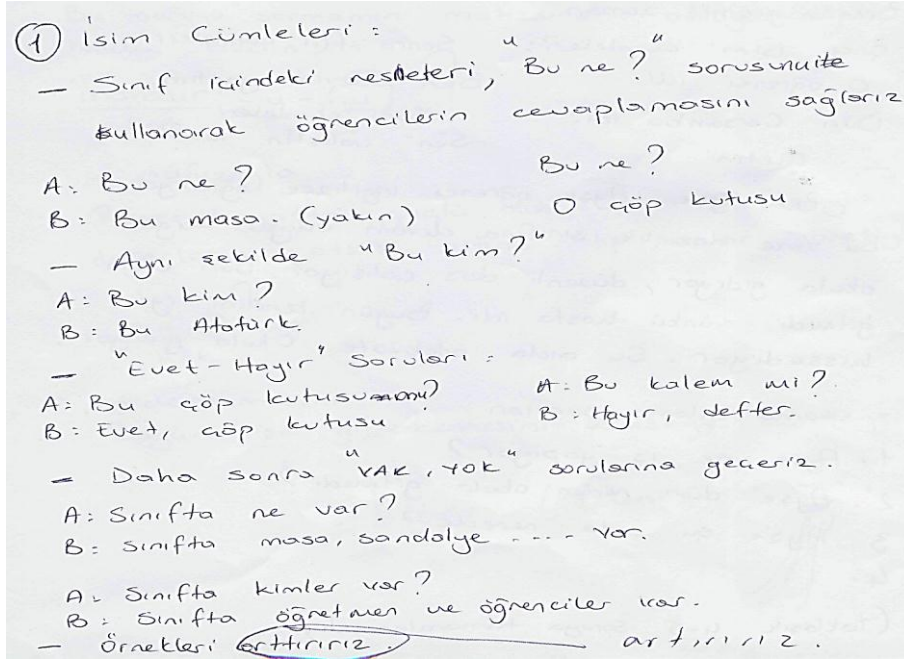 ① İsim Cümleleri :
— Sınıf içindeki nesneleri, "Bu ne ?" sorusunu ile
kullanarak öğrencilerin cevaplamasını sağlarız
A: Bu ne ?
B: Bu masa. (yakın)
Bu ne ?
O çöp kutusu
— Aynı şekilde "Bu kim ?"
A: Bu kim ?
B: Bu Atatürk.
— "Evet-Hayır" Soruları :
A: Bu çöp kutusu mu?
B: Evet, çöp kutusu
A: Bu kalem mi ?
B: Hayır, defter.
— Daha sonra "VAR, YOK" sorularına geçeriz.
A: Sınıfta ne var ?
B: Sınıfta masa, sandalye .... var.
A: Sınıfta kimler var ?
B: Sınıfta öğretmen ve öğrenciler var.
— Örnekleri arttırırız. artırırız.